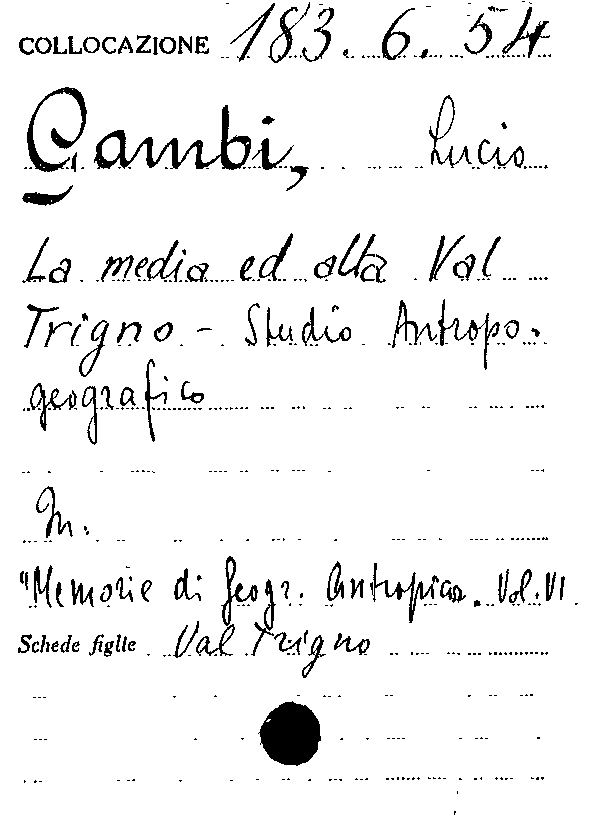 COLLOCAZIONE 183. 6. 54
Gambi, Lucio
La media ed alta Val
Trigno - Studio Antropo-
geografico
In.
"Memorie di Geogr. Antropica. Vol. VI
Schede figlie Val Trigno